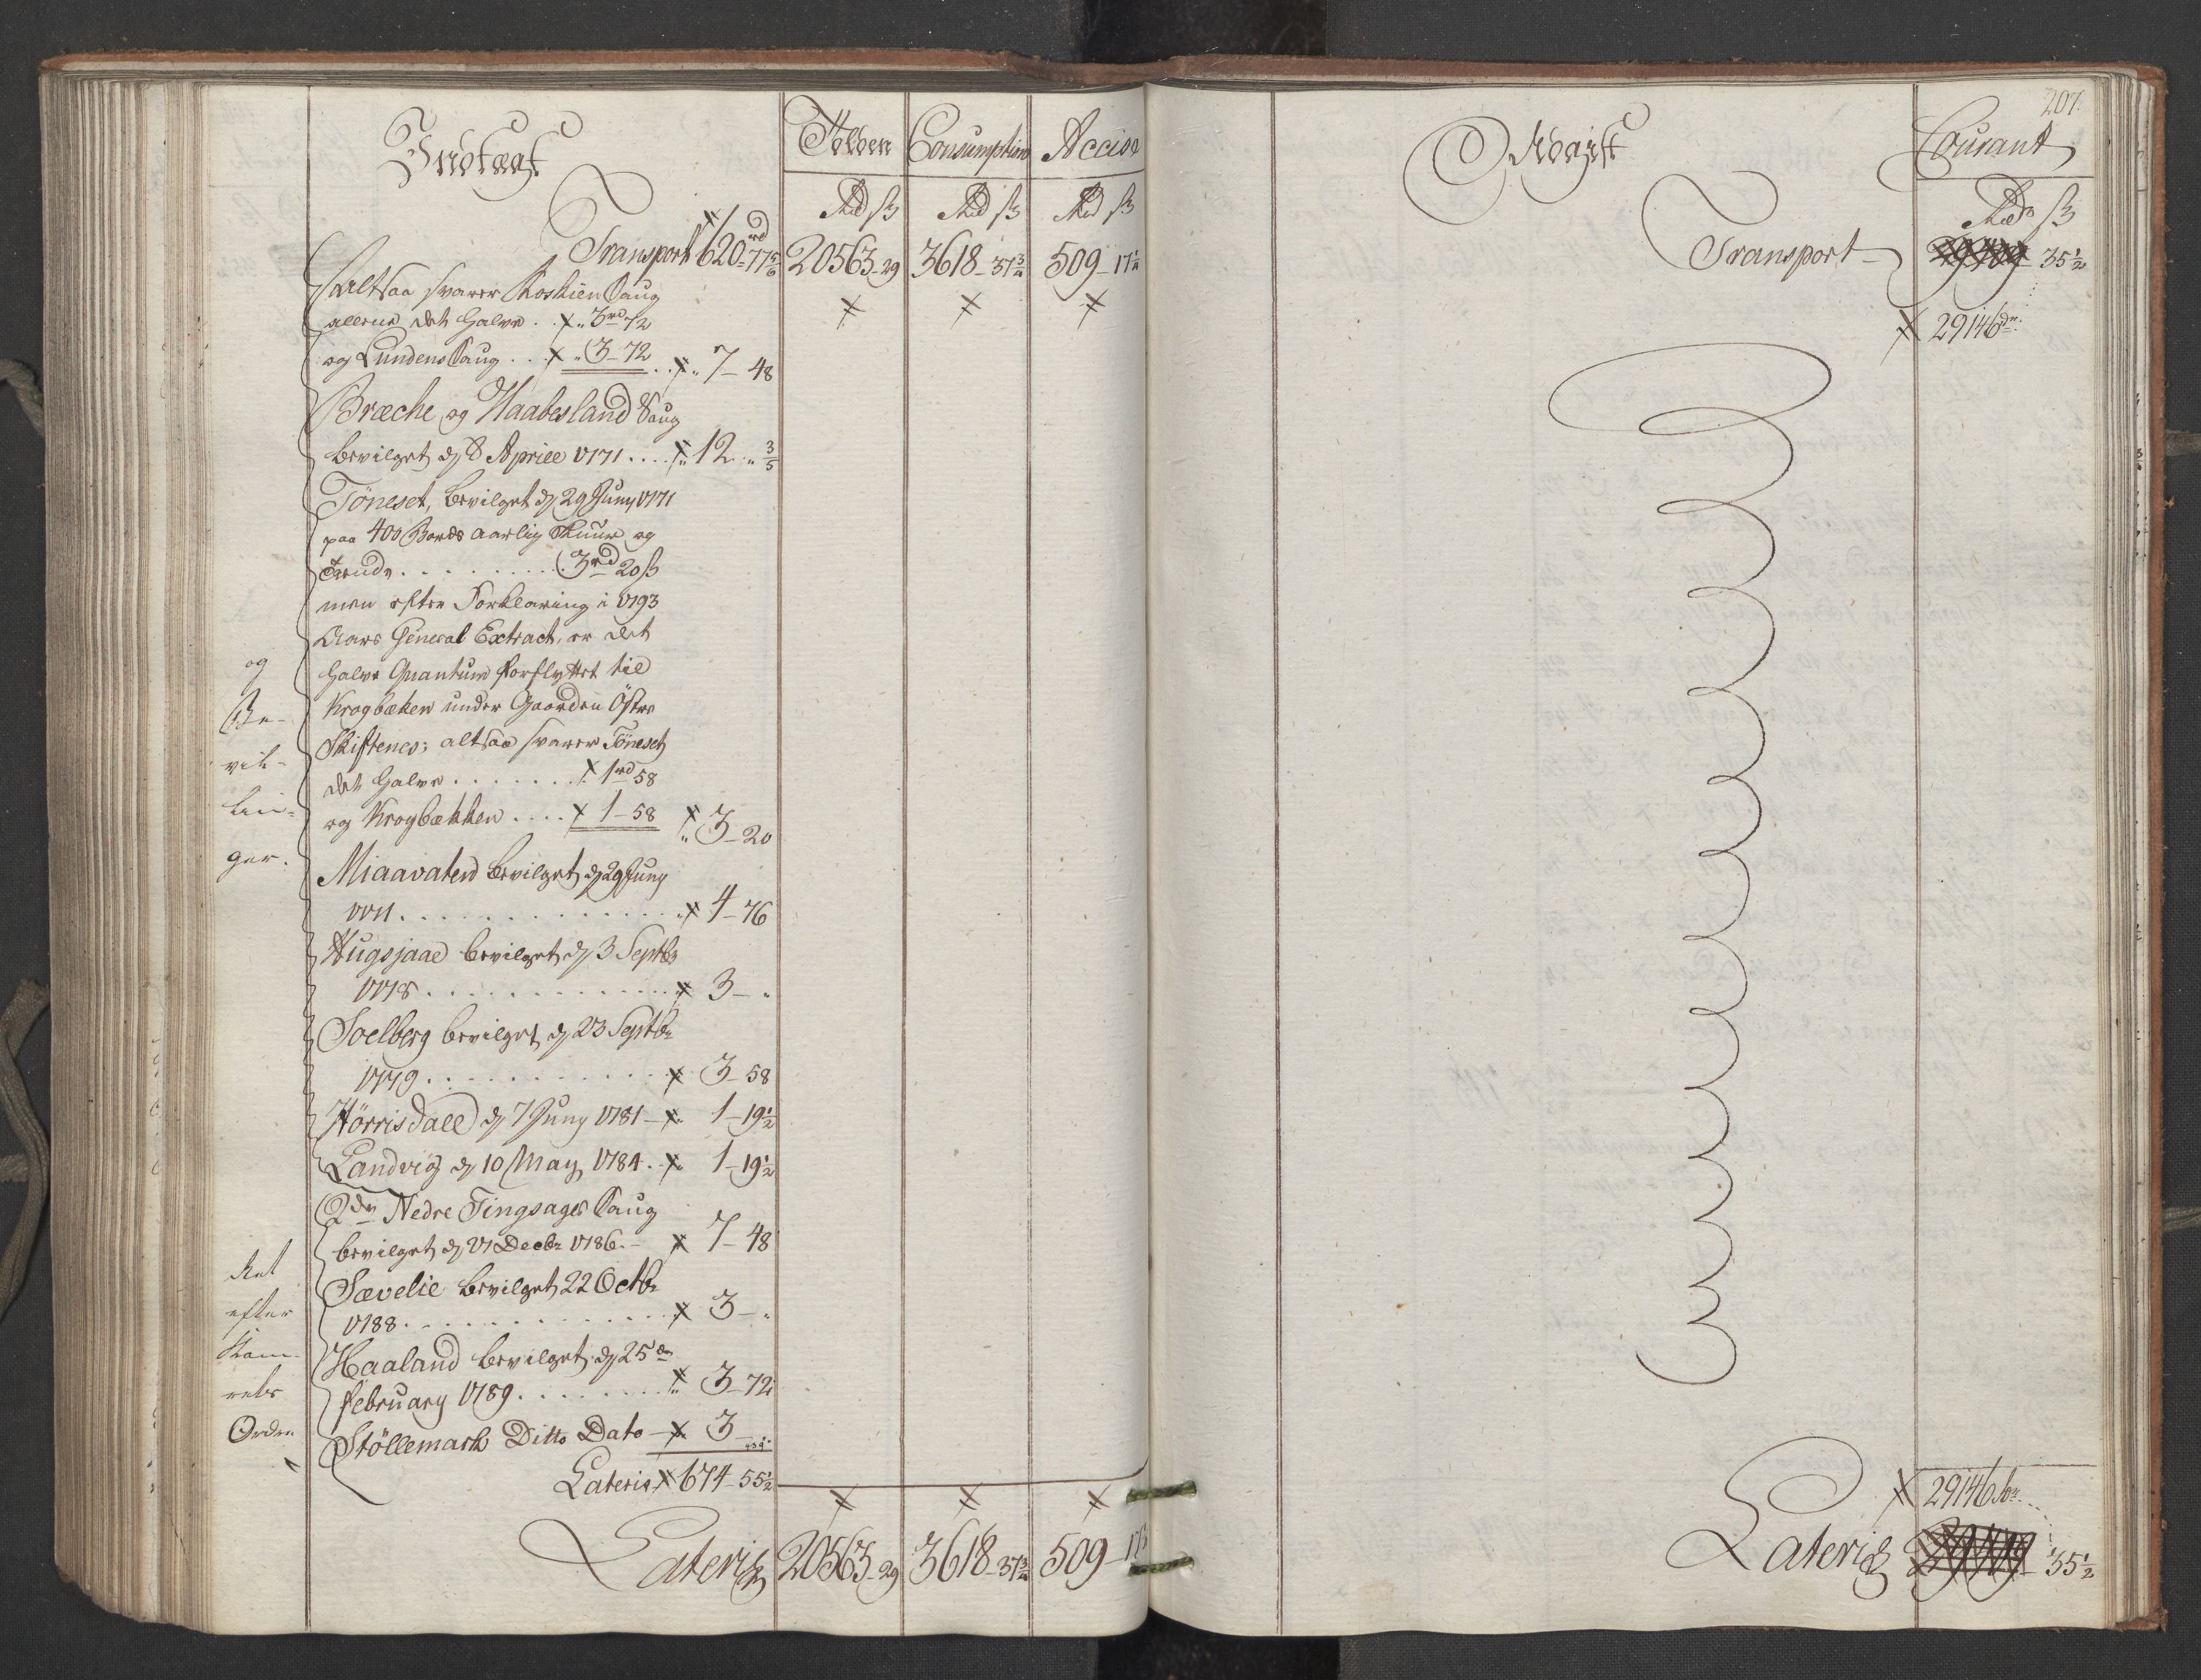 Indtægt
Tolden
Consumption
Accise
Rd ß
Rd ß
Rd ß
Transport 620 rd 77 5/6
20563 - 29
3618 - 37 3/4
509 - 17 1/4
altsaa svarer Koskien Saug
allene det halve . . 3 rd 72
og Lundens Saug . . . 3 - 72 . . 7 - 48
Bræche og Haabesland Saug
bevilget d 8 Aprill 1771 . . . . 12 " 3/5
Töneset, bevilget d 29 Juny 1771
paa 400 Bords aarlig Skuur og
. . . . . . . . . 3 rd 20 ß
men efter Forklaring i 1793
Aars General Extract, er det
halve Quantum forflyttet til
Krogbæken under Gaarden Östre
Skiftenes; altsaa svarer Töneset
det halve . . . . . . . 1 rd 58
og Krogbækken . . . . 1 - 58
3 - 20
Miaavaten bevilget d 29 Juny
1771 . . . . . . . . . . . . . 4 - 76
Hugsjaae bevilget d 3 Septbr
1778 . . . . . . . . . . . . . 3 - "
Soelberg bevilget d 23 Septbr
1779 . . . . . . . . . . . . 3 - 58
Hörrisdall d 7 Juny 1781 - 1 - 19 1/2
Landvig d 10 May 1784 . . 1 - 19 1/2
2de Nedre Tingsages Saug
bevilget d 27 Decbr 1786 . - 7 - 48
Sævelie bevilget 22 Octbr
1788 . . . . . . . . . . . . . 3 - "
Haaland bevilget d 25de
February 1789 . . . . . . . . 3 - 72
Stöllemark Ditto Dato - 3 -
Lateris 674 - 55 1/2
Lateris
20563 - 29
3618 - 37 3/4
509 - 17
og
Be-
vil-
lin-
ger.
Ret
efter
Kam-
rets
Ordre
207.
Udgift
Courant
Rdr ß
Transport - 35 1/2
29146
29146
Lateris 35 1/2